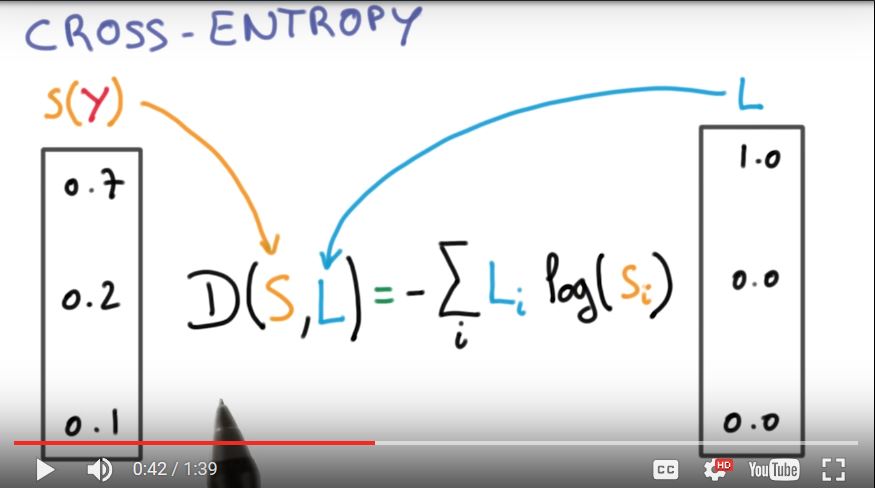 CROSS-ENTROPY
S(Y)
L
0.7
0.2
0.1
D(S,L) = - ∑i Li log(Si)
1.0
0.0
0.0
0:42 / 1:39
CC
HD
YouTube